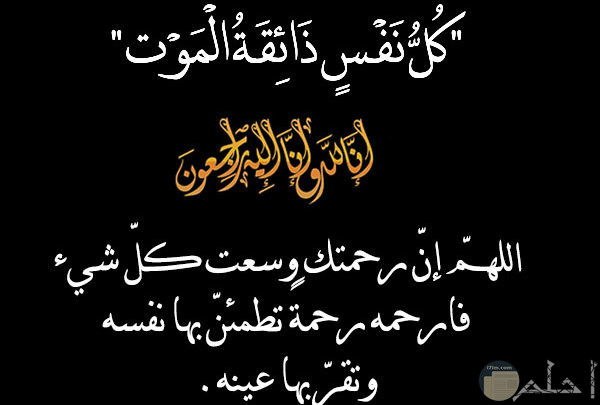 "كُلُّ نَفْسٍ ذَائِقَةُ الْمَوْت"
إنا لله وإنا إليه راجعون
اللهمّ إنّ رحمتك وسعت كلّ شيء
فارحمه رحمة تطمئنّ بها نفسه
وتقرّ بها عينه .
احلم